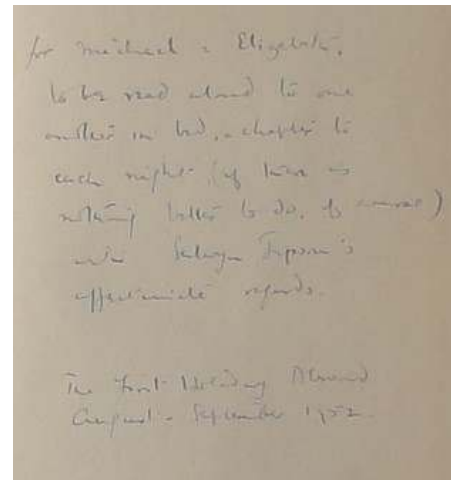 for Michael & Elizabeth,
to be read aloud to one
another in bed, a chapter to
each night (if there is
nothing better to do, of course)
with Selwyn Jepson's
affectionate regards.
The first Holiday Abroad
August - September 1952.